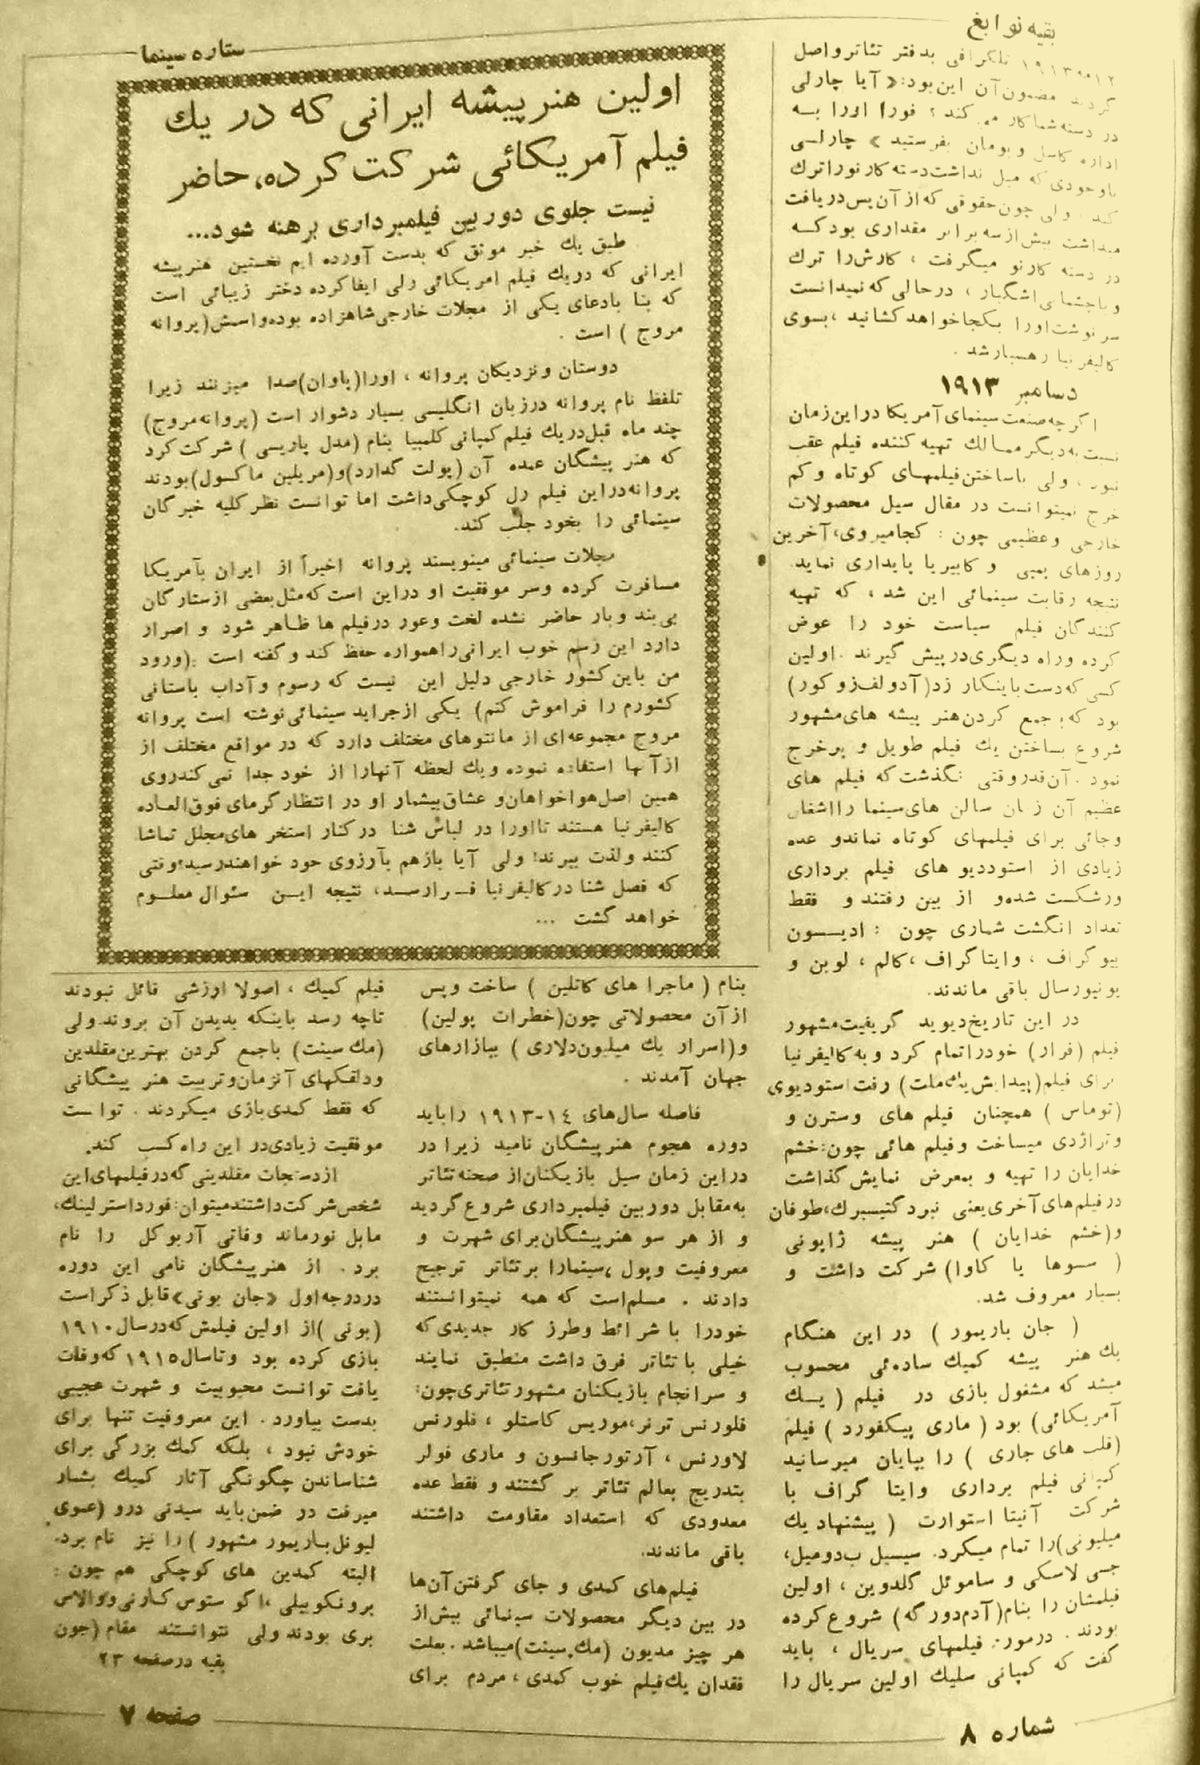 بقیه نوابغ
ستاره سینما
۱۹۱۳ تلگرافی بدفتر تئاتر واصل
گردید مضمون آن این بود: «آیا چارلی
در دسته شما کار میکند؟ فورا اورا بـه
اداره کاسل و بومان بفرستید» چارلـی
باوجودی که میل نداشت دسته کارنو راترك
کند، ولی چون حقوقی که از آن پس دریافت
میداشت بیش از سه برابر مقداری بود کـه
در دسته کارنو میگرفت، کارش را ترك
و باچشمانی اشگبار، در حالی که نمیدانست
سرنوشت اورا بکجا خواهد کشانید، بسوی
کالیفرنیا رهسپار شد.
دسامبر ۱۹۱۳
اگرچه صنعت سینمای آمریکا دراین زمان
نسبت به دیگر ممالك تهیه کننده فیلم عقب
نبود، ولی باساختن فیلمهـای کوتاه و کم
خرج نمیتوانست در مقابل سیل محصولات
خارجی و عظیمی چون: کجامیروی، آخرین
روزهای پمپی و کابیریا پایداری نماید.
نتیجه رقابت سینمائی این شد، که تهیه
کنندگان فیلم سیاست خود را عوض
کرده وراه دیگری در پیش گیرند. اولین
کسی که دست باینکار زد (آدولف زوکور)
بود که با جمع کردن هنر پیشه های مشهور
شروع بساختن یك فیلم طویل و پرخرج
نمود. آنقدر وقتی نگذشت که فیلم های
عظیم آن زمان سالن های سینما را اشغال
وجائی برای فیلمهای کوتاه نماند و عده
زیادی از استودیو های فیلم برداری
ورشکست شده و از بین رفتند و فقط
تعداد انگشت شماری چون: ادیسـون
بیوگراف، وایتاگراف، کالم، لوبن و
یونیورسال باقی ماندند.
در این تاریخ دیوید گریفیت مشهور
فیلم (فرار) خود را تمام کرد و به کالیفرنیا
برای فیلم (پیدایش یك ملت) رفت استودیوی
(توماس) همچنان فیلم های وسترن و
و تراژدی میساخت و فیلم هائی چون: خشم
خدایان را تهیه و بمعرض نمایش گذاشت
در فیلم های آخری یعنی نبرد گتیسبرك، طوفان
و (خشم خدایان) هنر پیشه ژاپونی
(سسوها یا کاوا) شرکت داشت و
بسیار معروف شد.
(جان باریمور) در این هنگام
یك هنر پیشه کمیك ساده ئی محسوب
میشد که مشغول بازی در فیلم (یـك
آمریکائی) بود (ماری پیکفورد) فیلم
(قلب های جاری) را بپایان میرسانید
کمپانی فیلم برداری وایتا گراف با
شرکت آنیتا استوارت (پیشنهاد یك
میلیونی) را تمام میکرد. سیسیل ب دومیل،
جسی لاسکی و ساموئل گلدوین، اولین
فیلمشان را بنام (آدم دورگه) شروع کرده
بودند. درمورد فیلمهای سریال، باید
گفت که کمپانی سلیك اولین سریال را
اولین هنرپیشه ایرانی که در یك
فیلم آمریکائی شرکت کرده، حاضر
نیست جلوی دوربین فیلمبرداری برهنه شود...
طبق یك خبر موثق که بدست آورده ایم نخستین هنرپیشه
ایرانی که دریك فیلم امریکائی رلی ایفا کرده دختر زیبائی است
که بنا بادعای یکی از مجلات خارجی شاهزاده بوده واسمش (پروانه
مروج) است.
دوستان و نزدیکان پروانه، اورا (پاوان) صدا میزنند زیرا
تلفظ نام پروانه درزبان انگلیسی بسیار دشوار است (پروانه مروج)
چند ماه قبل دریك فیلم کمپانی کلمبیا بنام (مدل پاریسی) شرکت کرد
که هنر پیشگان عمده آن (پولت گدارد) و (مریلین ماکسول) بودند
پروانه دراین فیلم رل کوچکی داشت اما توانست نظر کلیه خبرگان
سینمائی را بخود جلب کند.
مجلات سینمائی مینویسند پروانه اخیراً از ایران بآمریکا
مسافرت کرده وسر موفقیت او دراین است که مثل بعضی از ستارگان
بی بند وبار حاضر نشده لخت وعور در فیلم ها ظاهر شود و اصرار
دارد این رسم خوب ایرانی را همواره حفظ کند وگفته است: (ورود
من باین کشور خارجی دلیل این نیست که رسوم وآداب باستانی
کشورم را فراموش کنم) یکی از جراید سینمائی نوشته است پروانه
مروج مجموعه ای از مانتوهای مختلف دارد که در مواقع مختلف از
از آنها استفاده نموده ویك لحظه آنهارا از خود جدا نمی کند روی
همین اصل هواخواهان و عشاق بیشمار او در انتظار گرمای فوق العاده
کالیفرنیا هستند تا اورا در لباس شنا در کنار استخر های مجلل تماشا
کنند ولذت ببرند! ولی آیا بازهم بآرزوی خود خواهند رسید؛ وقتی
که فصل شنا در کالیفرنیا فـرارسـد، نتیجه ایـن سئوال معلـوم
خواهد گشت ...
بنام (ماجرا های کاتلین) ساخت و پس
از آن محصولاتی چون (خطرات پولین)
و (اسرار یك میلیون دلاری) ببازارهای
جهان آمدند.
فاصله سال های ۱۴-۱۹۱۳ را باید
دوره هجوم هنرپیشگان نامید زیرا در
دراین زمان سیل بازیکنان از صحنه تئاتر
به مقابل دوربین فیلمبرداری شروع گردید
و از هر سو هنرپیشگان برای شهرت و
معروفیت و پول، سینمارا بر تئاتر ترجیح
دادند. مسلم است که همه نمیتوانستند
خودرا با شرائط و طرز کار جدیدی که
خیلی با تئاتر فرق داشت منطبق نمایند
و سرانجام بازیکنان مشهور تئاتری چون:
فلورنس ترنر، موریس کاستلو، فلورنس
لاورنس، آرتور جانسون و ماری فولر
بتدریج بعالم تئاتر بر گشتند و فقط عده
معدودی که استعداد مقاومت داشتند
باقی ماندند.
فیلم های کمدی و جای گرفتن آن ها
در بین دیگر محصولات سینمائی بیش از
هر چیز مدیون (مك سینت) میباشد. بعلت
فقدان یك فیلم خوب کمدی، مردم برای
فیلم کمیك، اصولا ارزشی قائل نبودند
تاچه رسد باینکه بدیدن آن بروند ولی
(مك سینت) باجمع کردن بهترین مقلدین
ودلقکهای آنزمان و تربیت هنر پیشگانی
که فقط کمدی بازی میکردند. توانست
موفقیت زیادی در این راه کسب کند.
از دستجات مقلدینی که در فیلمهای این
شخص شرکت داشتند میتوان: فورد استرلینك،
مابل نورماند و فاتی آربوکل را نام
برد. از هنرپیشگان نامی این دوره
در درجه اول «جان بونی» قابل ذکر است
(بونی) از اولین فیلمش که درسال ۱۹۱۰
بازی کرده بود و تاسال ۱۹۱۵ که وفات
یافت توانست محبوبیت و شهرت عجیبی
بدست بیاورد. این معروفیت تنها برای
خودش نبود، بلکه کمك بزرگی برای
شناساندن چگونگی آثار کمیك بشمار
میرفت در ضمن باید سیدنی درو (عموی
لیونل باریمور مشهور) را نیز نام برد.
البته کمدین های کوچکی هم چون:
برونکوبیلی، اگوستوس کارنی و والاس
بری بودند ولی نتوانستند مقام (جون
بقیه درصفحه ۲۳
صفحه ۷
شماره ۸